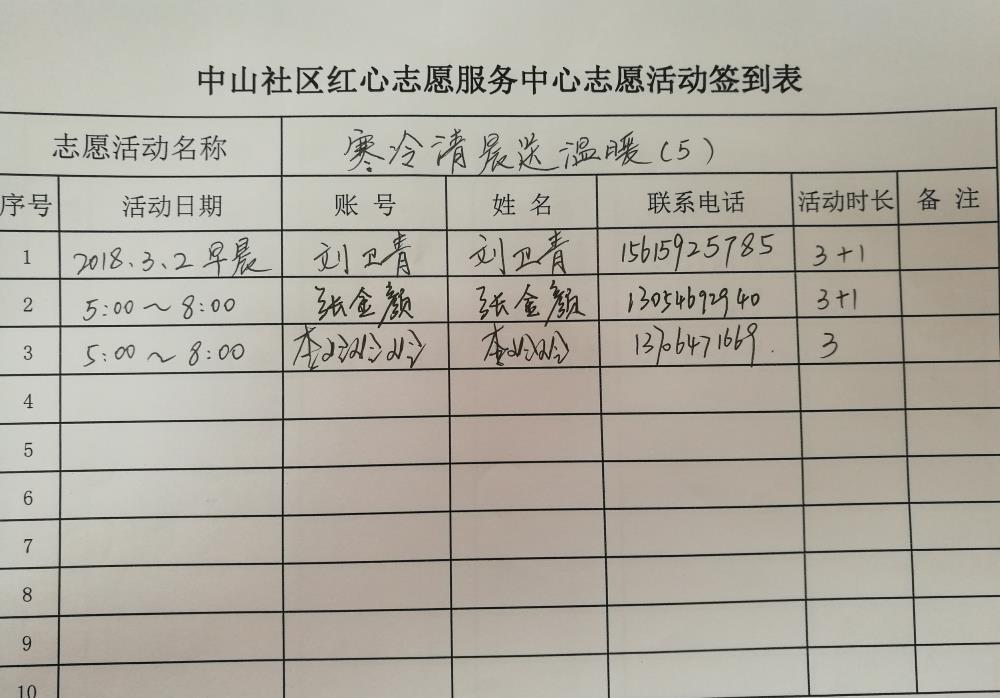 中山社区红心志愿服务中心志愿活动签到表
志愿活动名称 寒冷清晨送温暖(5)
序号 活动日期 账 号 姓 名 联系电话 活动时长 备 注
1 2018.3.2早晨 刘卫青 刘卫青 15615925785 3+1
2 5:00~8:00 张金颜 张金颜 13054692940 3+1
3 5:00~8:00 13706471669. 3
4
5
6
7
8
9
10